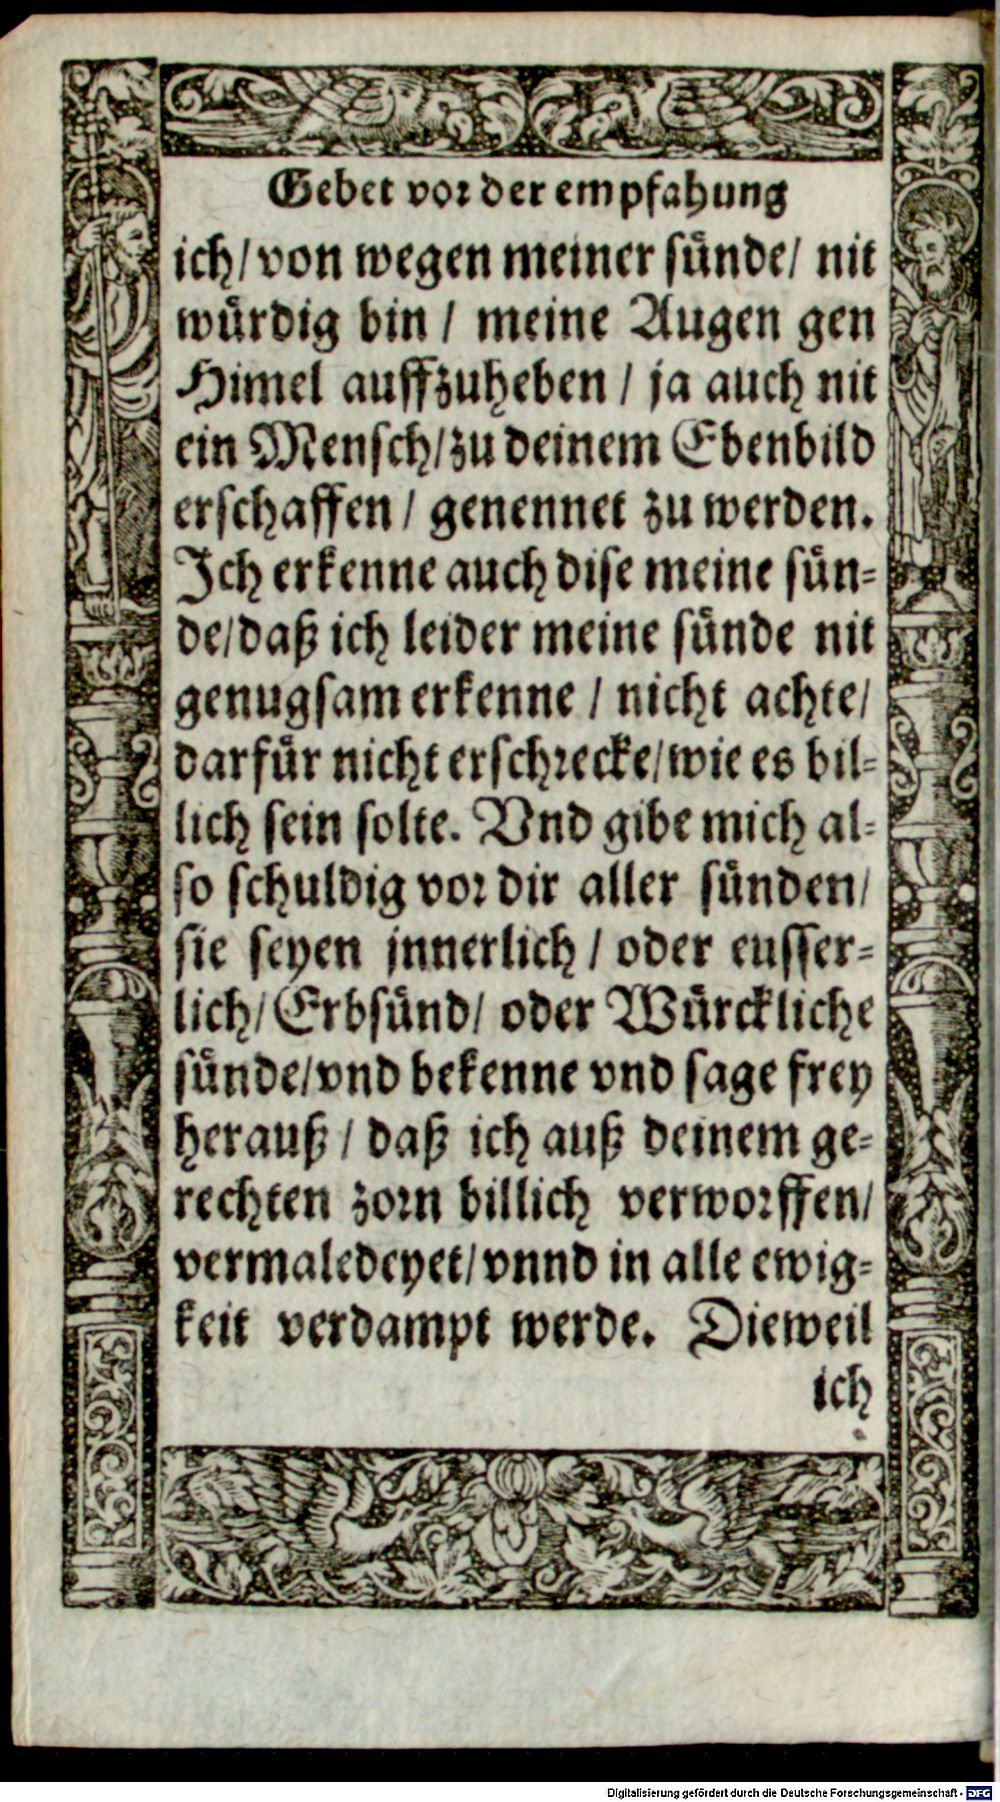 Gebet vor der empfahung
ich/ von wegen meiner sünde/ nit
würdig bin / meine Augen gen
Himel auffzuheben / ja auch nit
ein Mensch/ zu deinem Ebenbild
erschaffen / genennet zu werden.
Ich erkenne auch dise meine sün-
de/ daß ich leider meine sünde nit
genugsam erkenne / nicht achte/
darfür nicht erschrecke/ wie es bil-
lich sein solte. Vnd gibe mich al-
so schuldig vor dir aller sünden/
sie seyen jnnerlich / oder eusser-
lich/ Erbsünd/ oder Würckliche
sünde/ vnd bekenne vnd sage frey
herauß / daß ich auß deinem ge-
rechten zorn billich verworffen/
vermaledeyet/ vnnd in alle ewig-
keit verdampt werde. Dieweil
ich
Digitalisierung gefördert durch die Deutsche Forschungsgemeinschaft - DFG